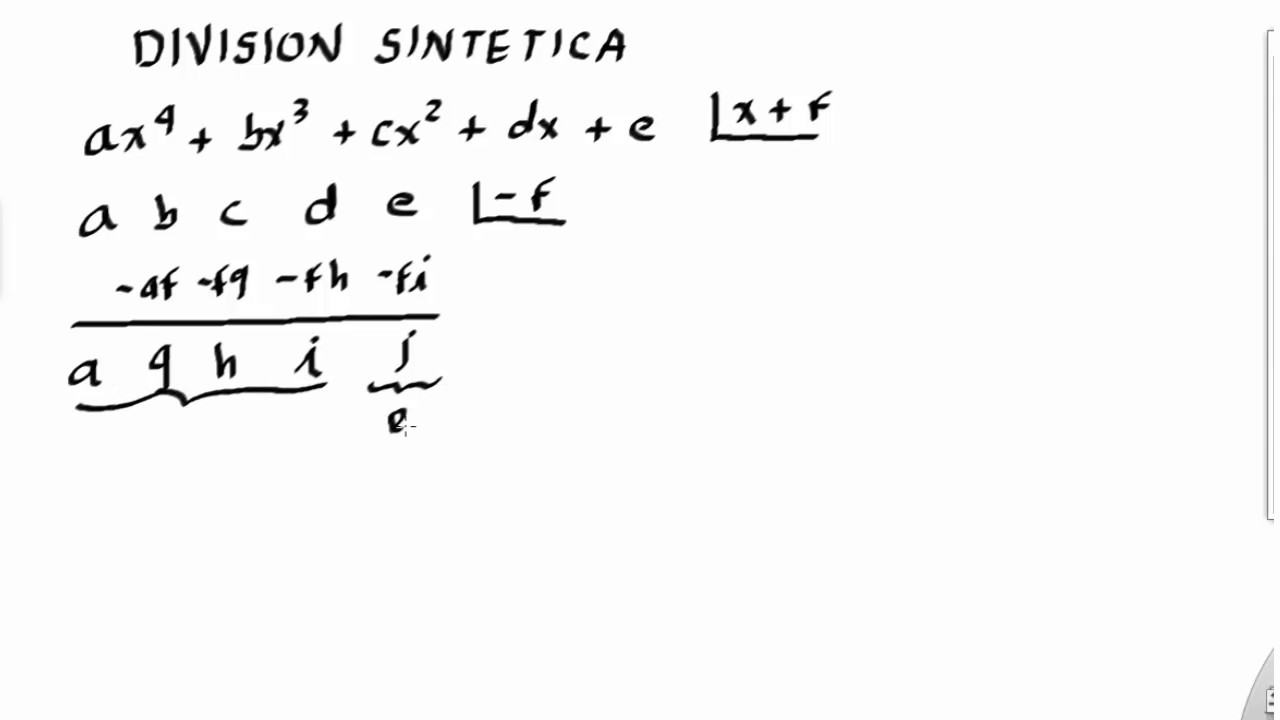 DIVISION SINTETICA
ax⁴ + bx³ + cx² + dx + e |x + f
a b c d e |-f
-af -fg -fh -fi
a g h i j